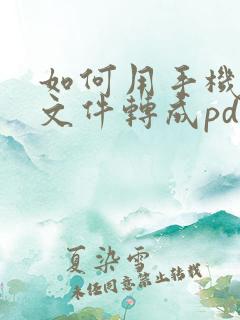 如何用手機
文件轉成pd
夏染雪
未經同意禁止轉載